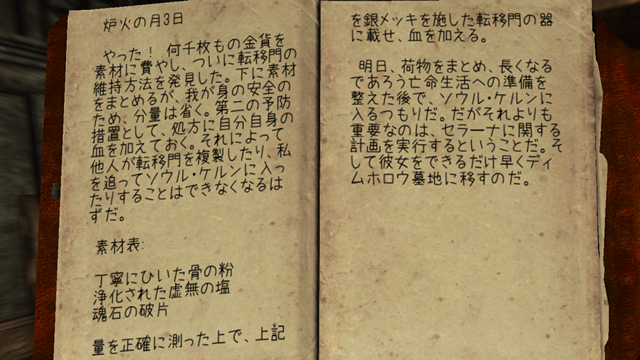 炉火の月3日
やった! 何千枚もの金貨を
素材に費やし、ついに転移門の
維持方法を発見した。下に素材
をまとめるが、我が身の安全の
ため、分量は省く。第二の予防
措置として、処方に自分自身の
血を加えておく。それによって
他人が転移門を複製したり、私
を追ってソウル・ケルンに入っ
たりすることはできなくなるは
ずだ。
素材表:
丁寧にひいた骨の粉
浄化された虚無の塩
魂石の破片
量を正確に測った上で、上記
を銀メッキを施した転移門の器
に載せ、血を加える。
明日、荷物をまとめ、長くなる
であろう亡命生活への準備を
整えた後で、ソウル・ケルンに
入るつもりだ。だがそれよりも
重要なのは、セラーナに関する
計画を実行するということだ。そ
して彼女をできるだけ早くディ
ムホロウ墓地に移すのだ。